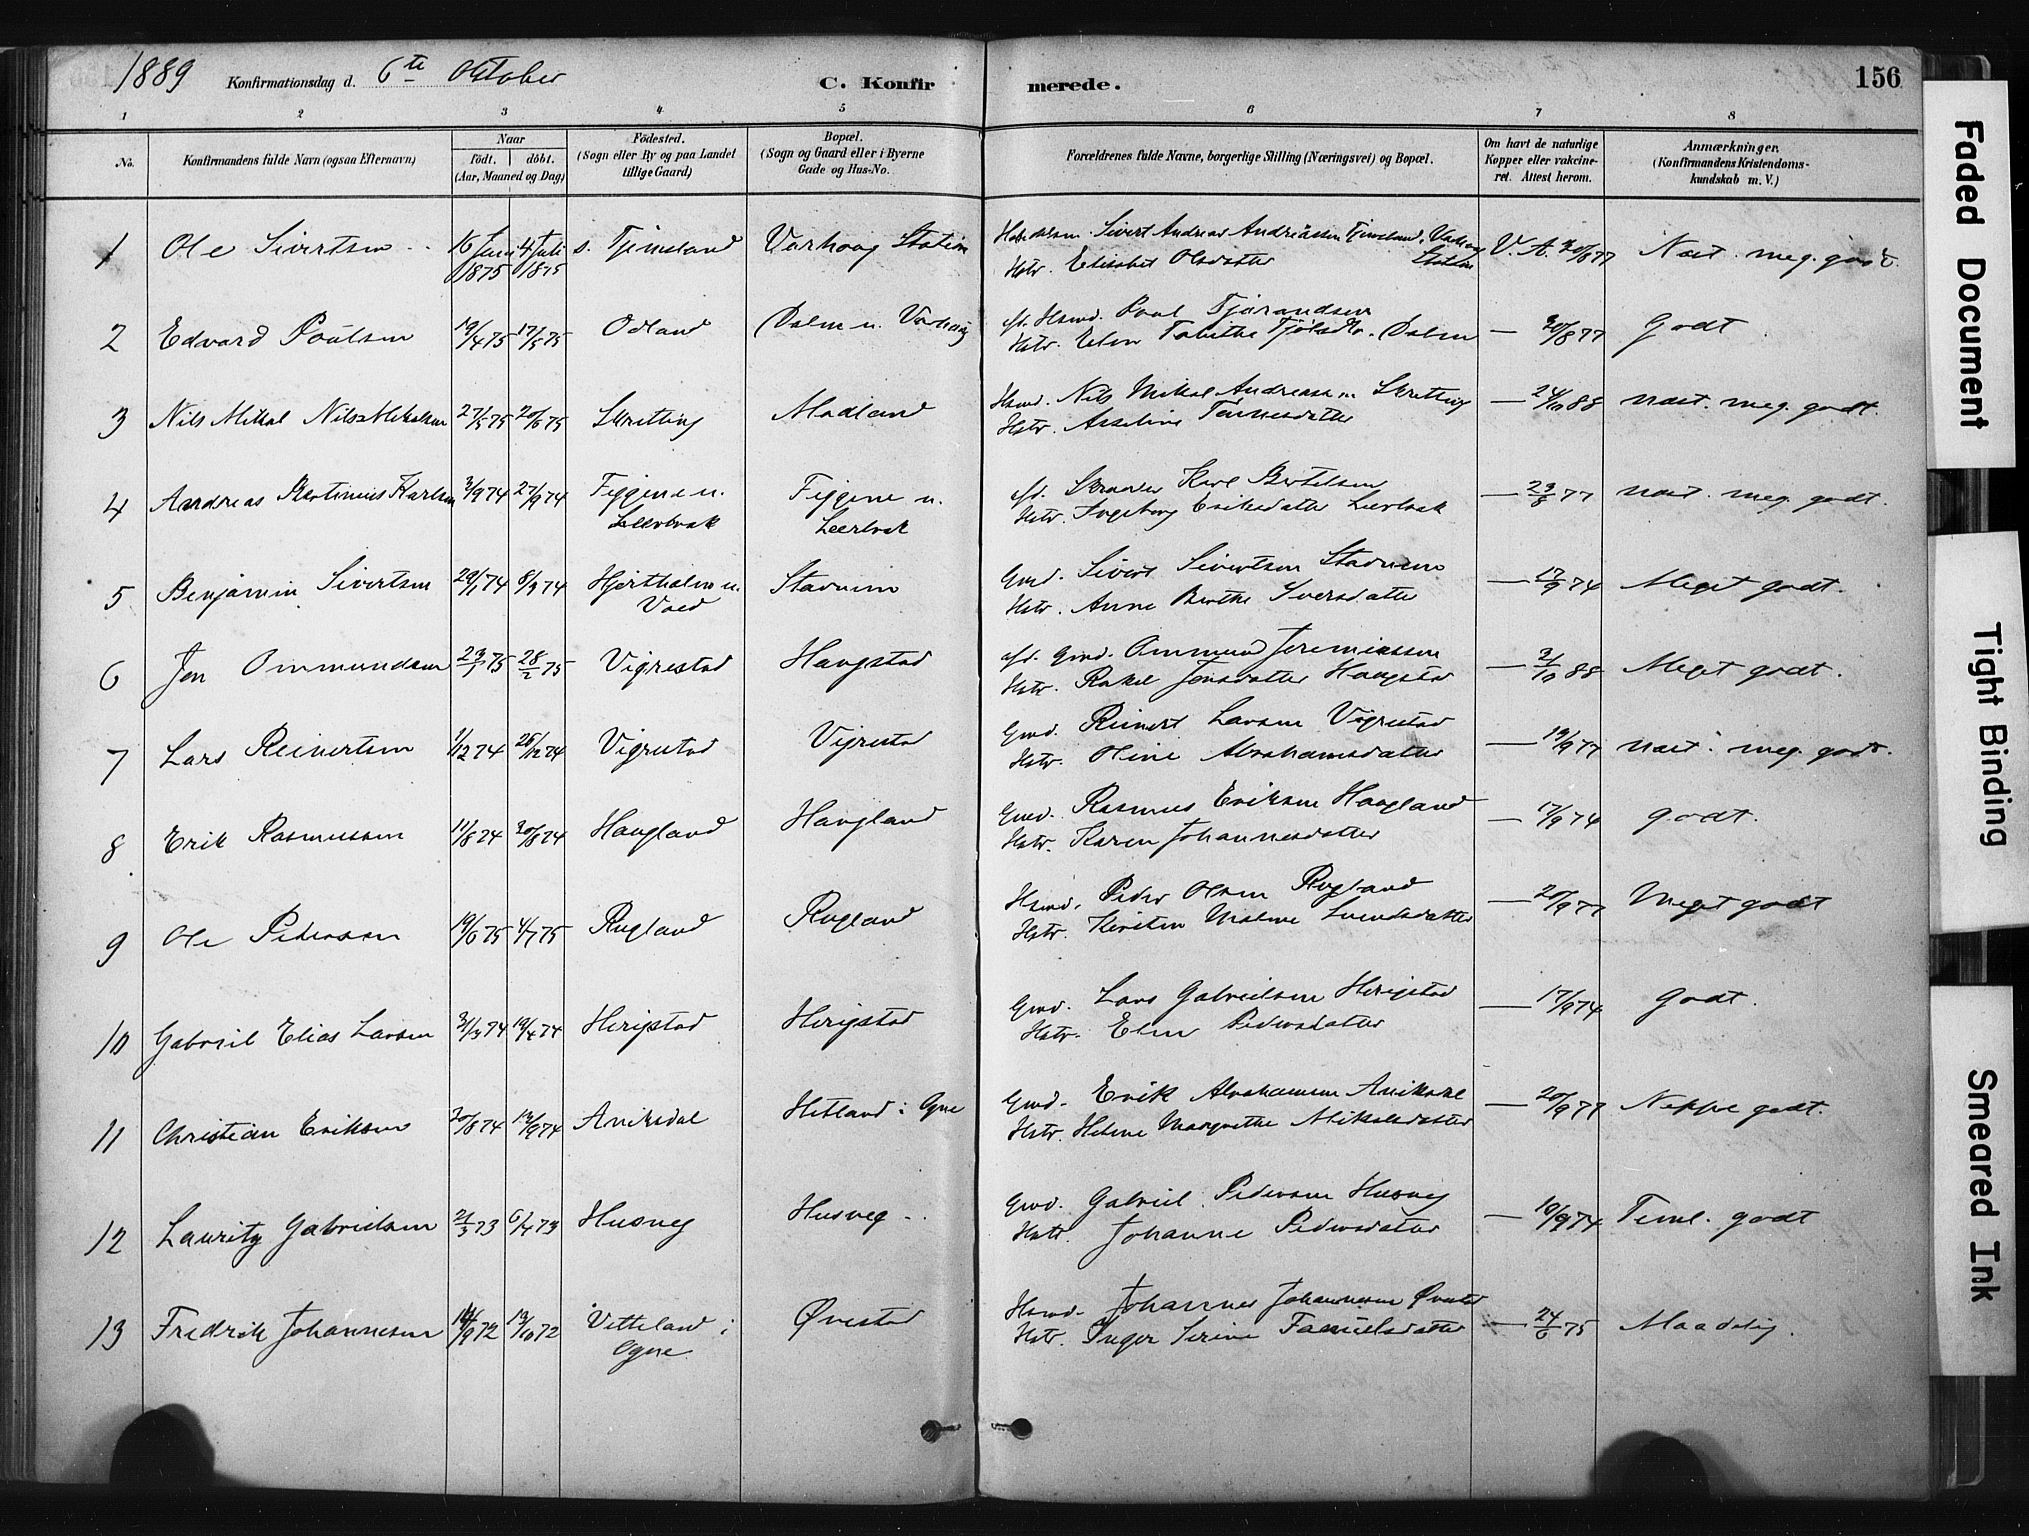 1889 Konfirmationsdag d. 6te Oktober C. Konfir merede. 156
1 2 3 4 5 6 7 8
No. Konfirmandens fulde Navn (ogsaa Efternavn) Naar födt. döbt. (Aar, Maaned og Dag) Födested. (Sogn eller By og paa Landet tillige Gaard) Bopæl. (Sogn og Gaard eller i Byerne Gade og Hus-No. Forældrenes fulde Navne, borgerlige Stilling (Næringsvei) og Bopæl. Om havt de naturlige Kopper eller vakcineret. Attest herom. Anmærkninger. (Konfirmandens Kristendomskundskab m. V.)
1 Ole Sivertsen 16 Juni 1875 4 Juli 1875 Tjemsland Varhoug Station Sivert Andreas Andreassen Tjemsland, Varhoug Station
Hstr. Elisabet Olsdatter V. A. 20/8 77 Næst. meg. godt.
2 Edvard Poulsen 19/4 75 17/5 75 Odland Dalen u. Varhoug
Hsmd. Poul Tjørandsen
Hstr. Elen Tabithe Dalen — 20/8 77 Godt
3 Nils Mikal Nils Mikalsen 27/5 75 20/6 75 Skretting Madland
Hsmd. Nils Mikal Andreasen Skretting
Hstr. Asseline Tønnesdatter — 24/10 88 næst. meg. godt.
4 Andreas Martinius Karlsen 3/9 74 27/9 74 Figgene u. Leerbrek Figgene u. Leerbrek
Karl Bertelsen
Hstr. Ingeborg Eriksdatter Leerbrek — 23/8 77 næst. meg. godt.
5 Benjamin Sivertsen 29/1 74 8/3 74 Hjertholm u. Voed Stavnim
Gmd. Sivert Sivertsen Stavnem
Hstr. Anne Berthe Iversdatter — 17/9 74 Meget godt.
6 Jon Ommundsen 23/1 75 28/2 75 Vigrestad Haugstad
afd. Gmd. Ommund Jeremiassen
Hstr. Rakel Jonsdatter Haugstad — 2/10 88 Meget godt.
7 Lars Reinertsen 1/12 74 26/12 74 Vigrestad Vigrestad
Gmd. Reinert Larsen Vigrestad
Hstr. Oline Abrahamsdatter — 19/9 77 næst. meg. godt.
8 Erik Rasmussen 11/8 74 30/8 74 Haugland Haugland
Gmd. Rasmus Eriksen Haugland
Hstr. Karen Johannesdatter — 17/9 74 godt.
9 Ole Pedersen 19/6 75 4/7 75 Rugland Rugland
Hsmd. Peder Olsen Rugland
Hstr. Kirsten Malene Svendsdatter — 20/9 77 Meget godt
10 Gabriel Elias Larsen 31/3 74 19/4 74 Herigstad Herigstad
Gmd. Lars Gabrielsen Herigstad
Hstr. Elen Pedersdatter — 17/9 74 Godt.
11 Christian Eriksen 20/8 74 13/9 74 Aniksdal Hetland i Ogne
Gmd. Erik Abrahamsen Aniksdal
Hstr. Helene Margrethe Mikalsdatter — 20/9 77 Neppe godt.
12 Lauritz Gabrielsen 21/3 73 6/4 73 Husveg Husveg
Gmd. Gabriel Pedersen Husveg
Hstr. Johanne Pedersdatter — 10/9 74 Teml. godt
13 Fredrik Johannesen 14/9 72 13/10 72 Vetteland i Ogne Øvestad
Hsmd. Johannes Johannesen Øvestad
Hstr. Inger Serine Samuelsdatter — 24/6 75 Maadelig.
Faded Document
Tight Binding
Smeared Ink